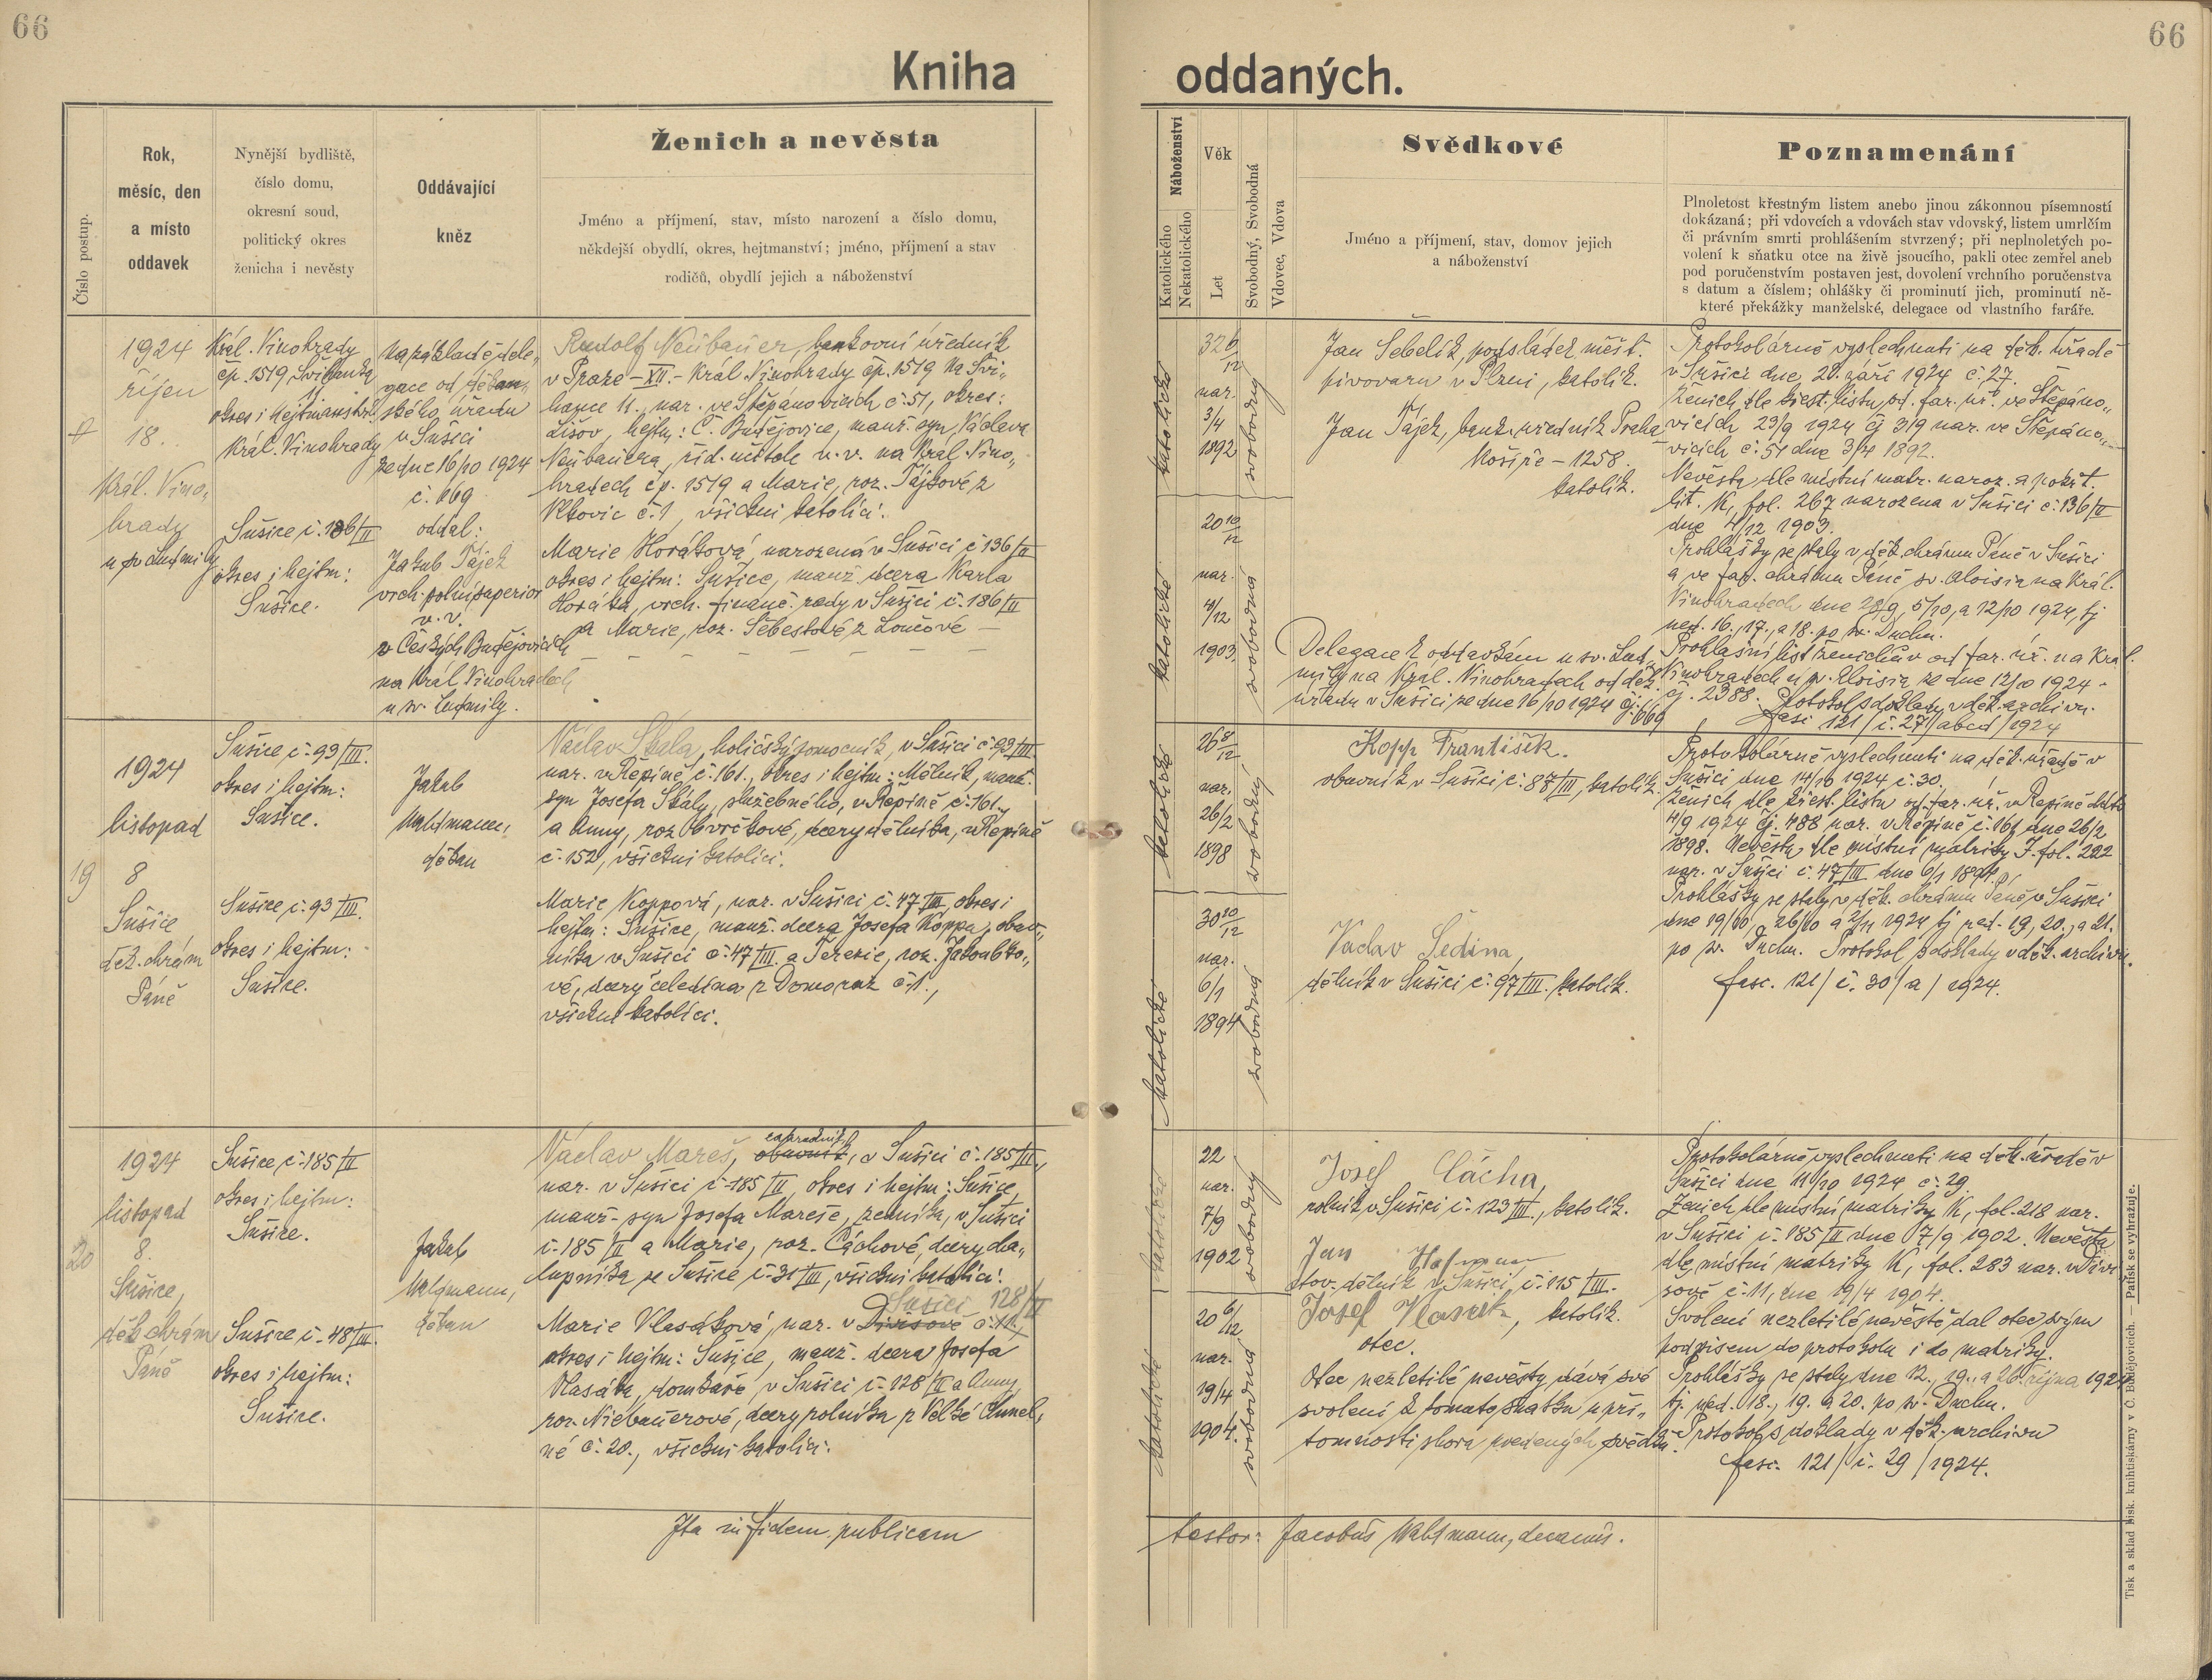 66
66
Kniha oddaných.
Číslo postup.
Rok,
měsíc, den
a místo
oddavek
Nynější bydliště,
číslo domu,
okresní soud,
politický okres
ženicha i nevěsty
Oddávající
kněz
Ženich a nevěsta
Jméno a příjmení, stav, místo narození a číslo domu,
někdejší obydlí, okres, hejtmanství; jméno, příjmení a stav
rodičů, obydlí jejich a náboženství
Náboženství
Katolického
Nekatolického
Věk
Let
Svobodný, Svobodná
Vdovec, Vdova
Svědkové
Jméno a příjmení, stav, domov jejich
a náboženství
Poznamenání
Plnoletost křestným listem anebo jinou zákonnou písemností
dokázaná; při vdovcích a vdovách stav vdovský, listem umrlčím
či právním smrti prohlášením stvrzený; při neplnoletých po-
volení k sňatku otce na živě jsoucího, pakli otec zemřel aneb
pod poručenstvím postaven jest, dovolení vrchního poručenstva
s datum a číslem; ohlášky či prominutí jich, prominutí ně-
které překážky manželské, delegace od vlastního faráře.
1924
říjen
18.
Král. Vino-
hrady
u sv. Ludmily
Král. Vinohrady
čp. 1519 Švihanka
11.
okres i hejtmanství:
Král. Vinohrady
Sušice č. 186/II
okres i hejtm:
Sušice.
Na základě dele-
gace od děkan-
ského úřadu
v Sušici
ze dne 16/10 1924
č. 669
oddal:
Jakub Pájek
vrch. polní superior
v. v.
v Českých Budějovicích
na Král. Vinohradech
u sv. Ludmily.
Rudolf Neübaüer, bankovní úředník
v Praze - XII. - Král. Vinohrady čp. 1519 Na Švi-
hance 11., nar. ve Štěpanovicích č. 51, okres:
Lišov, hejtm: Č. Budějovice, manž. syn Václava
Neübaüera, říd. učitele v. v. na Král. Vino-
hradech čp. 1519 a Marie, roz. Pájkové z
č. 1, všichni katolíci.
Marie Horáková, narozená v Sušici č. 136/II
okres i hejtm: Sušice, manž. dcera Karla
Horáka, vrch. finanč. rady v Sušici č. 186/II
a Marie, roz. Šebestové z Loučové —
katolické
32 6/12
nar.
3/4
1892
svobodný
katolické
20 10/12
nar.
4/12
1903.
svobodná
Jan Šebelík, podsládek měšť.
pivovaru v Plzni, katolík.
Jan Pájek, bank. úředník Praha
Košíře - 1258.
katolík.
Delegace k oddavkám u sv. Lud-
mily na Král. Vinohradech od děk.
úřadu v Sušici ze dne 16/10 1924 čj. 669
Protokolárně vyslechnuti na děk. úřadě
v Sušici dne 28. září 1924 č. 27.
Ženich dle křest. listu od far. úř. ve Štěpáno-
vicích 23/9 1924 čj 319 nar. ve Štěpáno-
vicích č. 51 dne 3/4 1892.
Nevěsta dle místní matr. naroz. a pokřt.
lit. K, fol. 267 narozena v Sušici č. 136/II
dne 4/12 1903.
Prohlášky se staly v děk. chrámu Páně v Sušici
a ve far. chrámu Páně sv. Aloisia na Král.
Vinohradech dne 28/9, 5/10, a 12/10 1924 tj
ned. 16., 17., a 18. po sv. Duchu.
Prohlašní list ženichův od far. úř. na Král.
Vinohradech u sv. Aloisia ze dne 12/10 1924 -
čj. 2388. Protokol s doklady v děk. archivu.
fasc. 121/č. 27/abcd/1924
19
1924
listopad
8
Sušice
děk. chrám
Páně
Sušice č. 93/III.
okres i hejtm:
Sušice.
Sušice č. 93 III.
okres i hejtm:
Sušice.
Jakub
Waldmann,
děkan
Václav Skala, holičský pomocník, v Sušici č. 93/III
nar. v Řepíně č. 161., okres i hejtm: Mělník, manž.
syn Josefa Skály, služebného, v Řepíně č. 161.,
a Anny, roz. Cvrčkové, dcery dělníka, v Řepíně
č. 152, všichni katolíci.
Marie Koppová, nar. v Sušici č. 47 III, okres i
hejtm: Sušice, manž. dcera Josefa Koppa, obuv-
níka v Sušici č. 47 III. a Terezie, roz. Jakoubko-
vé, dcery čeledína z Domoraz č. 1.,
všichni katolíci.
katolické
26 8/12
nar.
26/2
1898
svobodný
katolické
30 10/12
nar.
6/1
1894
svobodná
Kopp František.
obuvník v Sušici č. 87/III, katolík.
Vaclav Šedina,
dělník v Sušici č. 97 III. katolík.
Protokolárně vyslechnuti na děk. úřadě v
Sušici dne 14/10 1924 č. 30.
Ženich dle křest. listu od far. úř. v Řepíně
4/9 1924 čj. 488 nar. v Řepíně č. 161 dne 26/2
1898. Nevěsta dle místní matriky J. fol. 222
nar. v Sušici č. 47 III dne 6/1 1894.
Prohlášky se staly v děk. chrámu Páně v Sušici
dne 19/10, 26/10 a 2/11 1924 tj ned. 19, 20., a 21.
po sv. Duchu. Protokol s doklady v děk. archivu.
fasc. 121/č. 30/a/1924.
20
1924
listopad
8.
Sušice,
děk. chrám
Páně
Sušice č. 185 II
okres i hejtm:
Sušice.
Sušice č. 48 III.
okres i hejtm:
Sušice.
Jakub
Waldmann,
děkan
zahradník
Václav Mareš, obuvník, v Sušici č. 185 II,
nar. v Sušici č. 185 II, okres i hejtm: Sušice,
manž. syn Josefa Mareše, zedníka, v Sušici
č. 185 II a Marie, roz. Cáchové, dcery cha-
lupníka ze Sušice č. 31 III, všichni katolíci.
Sušici 128/II
Marie Vlasáková, nar. v Divišově č. 11,
okres i hejtm: Sušice, manž. dcera Josefa
Vlasáka, domkaře v Sušici č. 128 II a Anny
roz. Niebauerové, dcery rolníka z Velké Chmel-
né č. 20., všichni katolíci.
katolické
22
nar.
7/9
1902
svobodný
katolické
20 6/12
nar.
19/4
1904.
svobodná
Josef Cácha,
rolník v Sušici č. 123 III., katolík.
Jan Hofman
stav. dělník v Sušici, č. 115 III.
Josef Vlasák, katolík.
otec.
Otec nezletilé nevěsty dává své
svolení k tomuto sňatku u pří-
tomnosti shora uvedených svědků.
Protokolárně vyslechnuti na děk. úřadě v
Sušici dne 11/10 1924 č. 29.
Ženich dle místní matriky K, fol. 218 nar.
v Sušici č. 185 II dne 7/9 1902. Nevěsta
dle místní matriky K, fol. 283 nar. v Divi-
šově č. 11, dne 19/4 1904.
Svolení nezletilé nevěstě dal otec svým
podpisem do protokolu i do matriky.
Prohlášky se staly dne 12., 19., a 26. října 1924
tj. ned. 18., 19. a 20. po sv. Duchu.
Protokol s doklady v děk. archivu
fasc. 121/č. 29/1924.
Ita in fidem publicam
testor: Jacobus Waldmann, decanus.
Tisk a sklad bisk. knihtiskárny v Č. Budějovicích. — Patisk se vyhražuje.